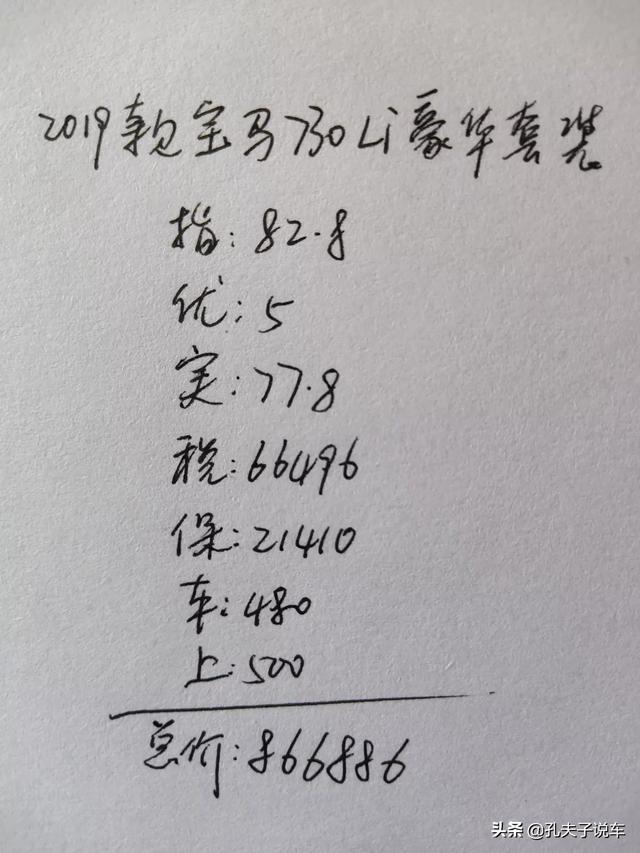 2019款宝马730Li豪华套装
指:82.8
优:5
实:77.8
税:66496
保:21410
车:480
上:500
总价:866886
头条 @孔夫子说车